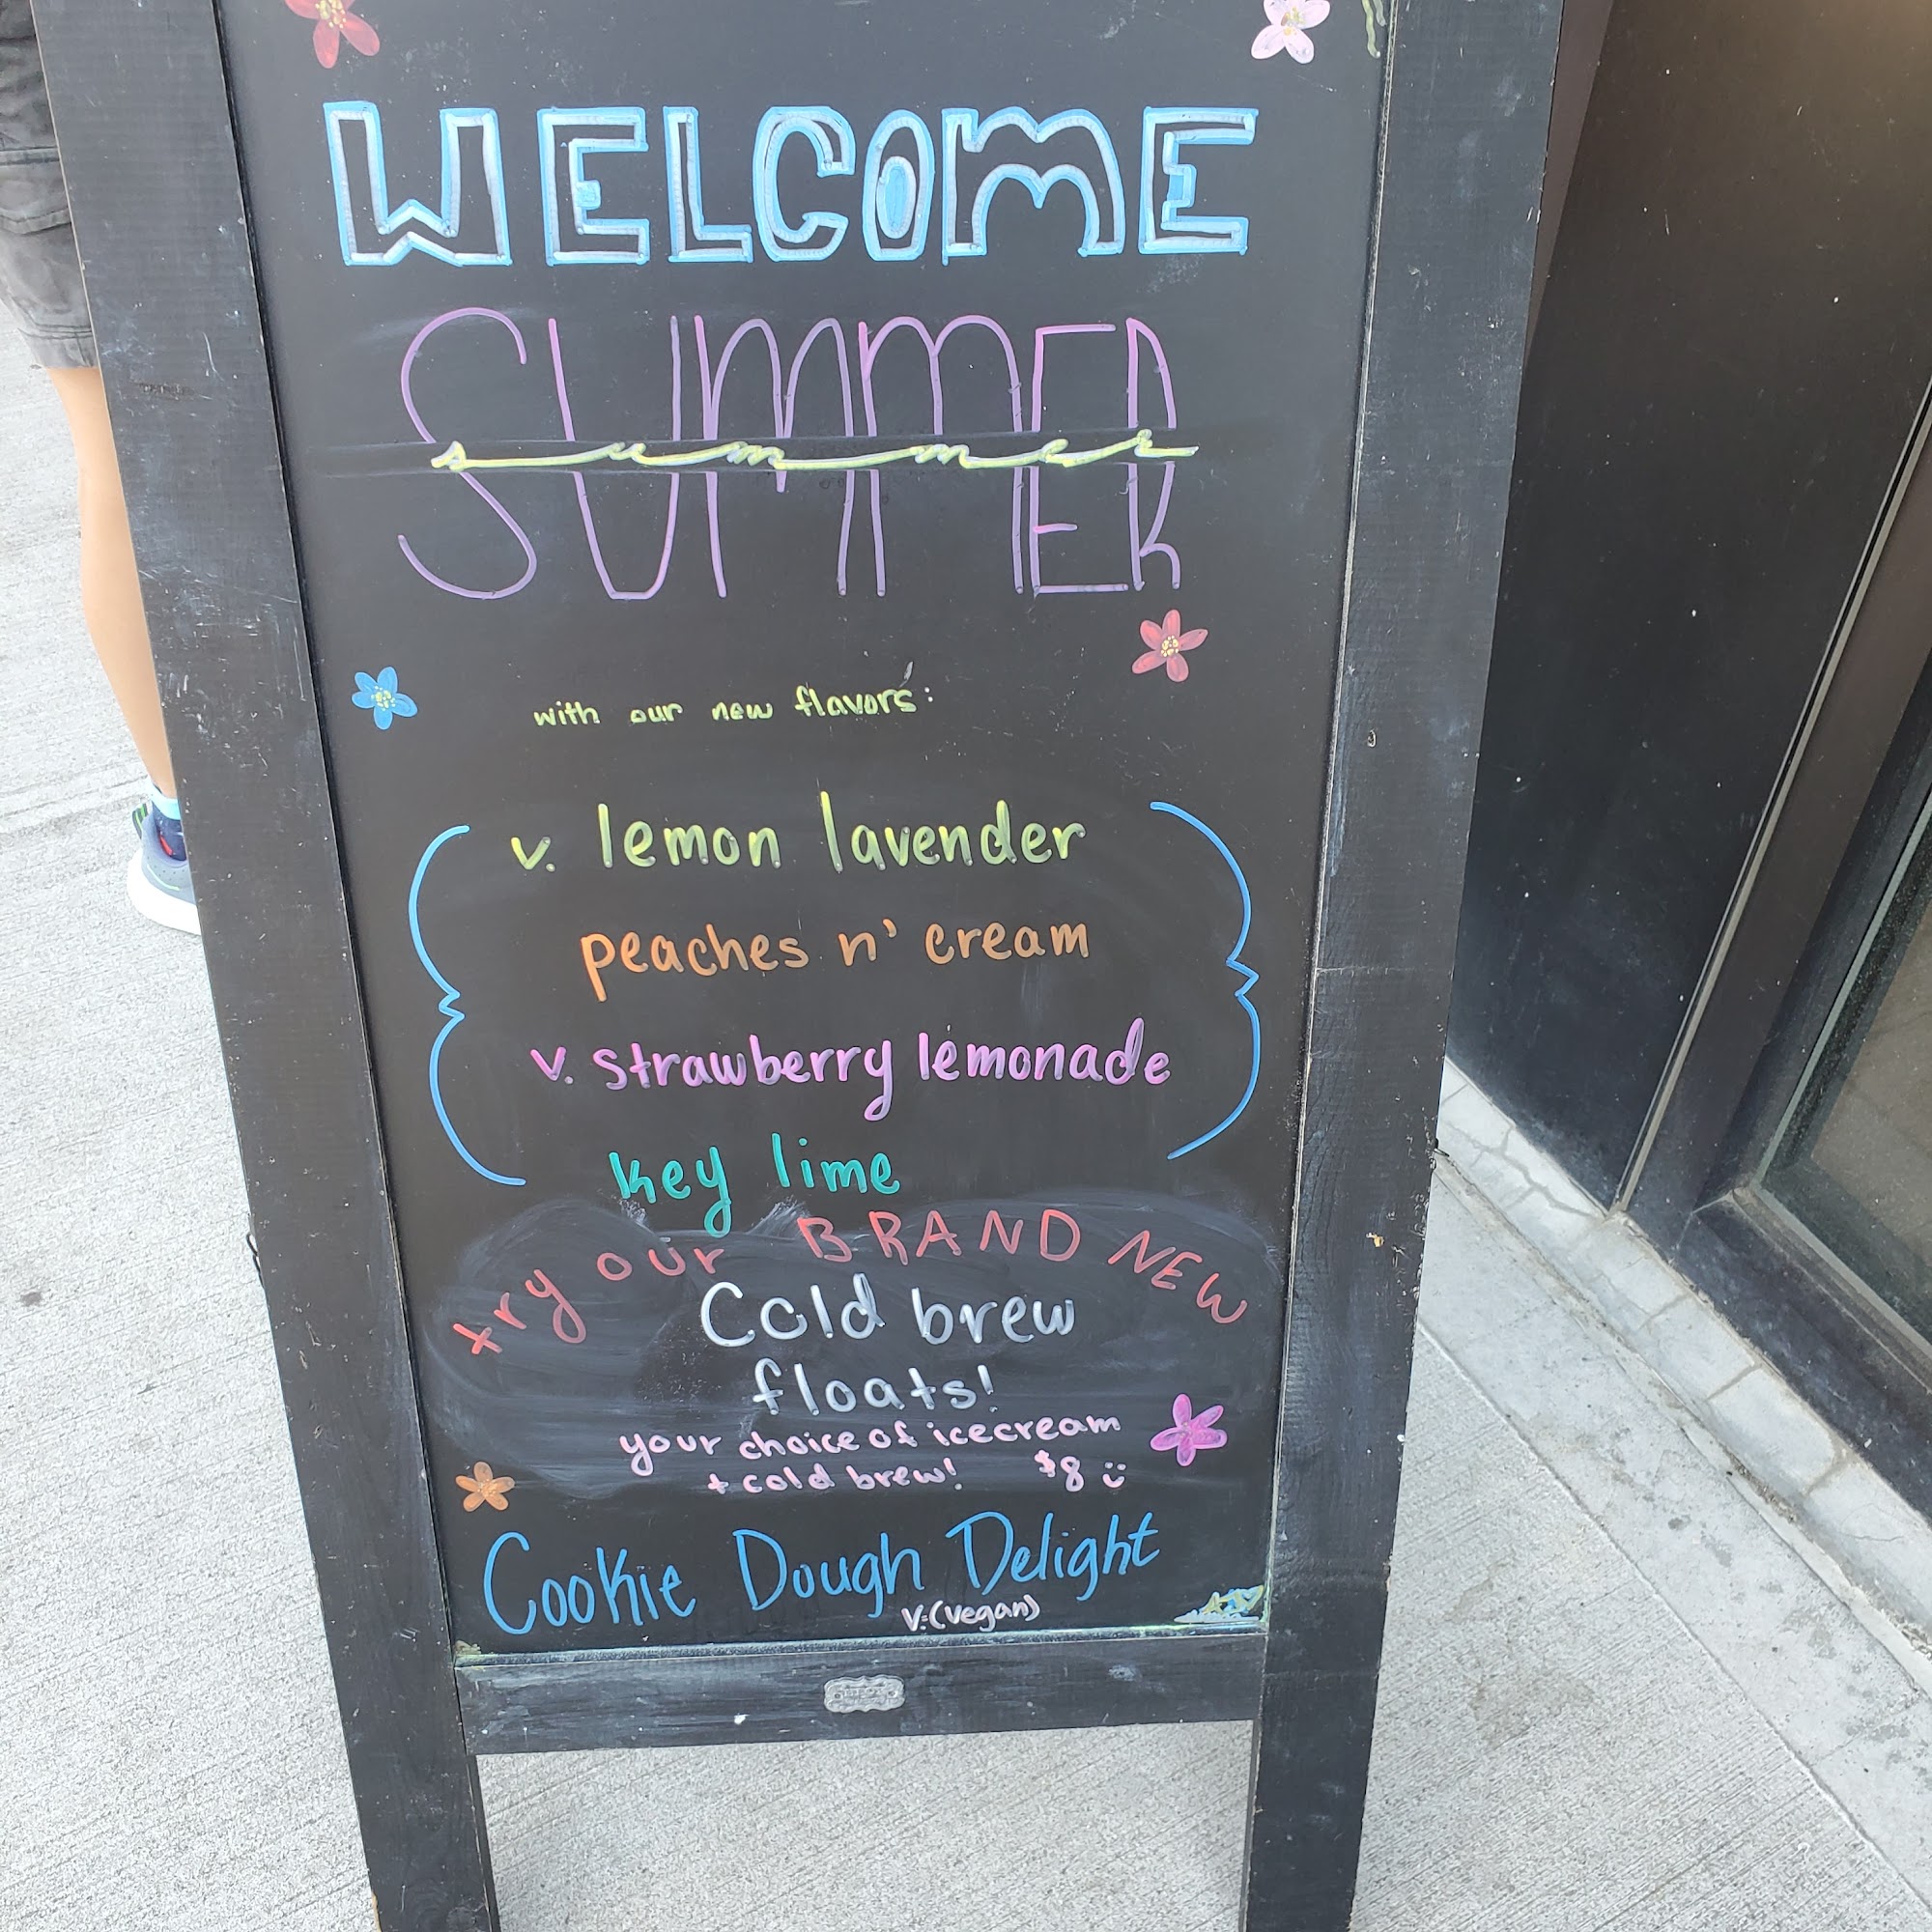 WELCOME
SUMMER
summer
with our new flavors:
v. lemon lavender
peaches n' cream
v. strawberry lemonade
key lime
try our BRAND NEW
Cold brew
floats!
your choice of icecream
+ cold brew! $8 :)
Cookie Dough Delight
V:(vegan)